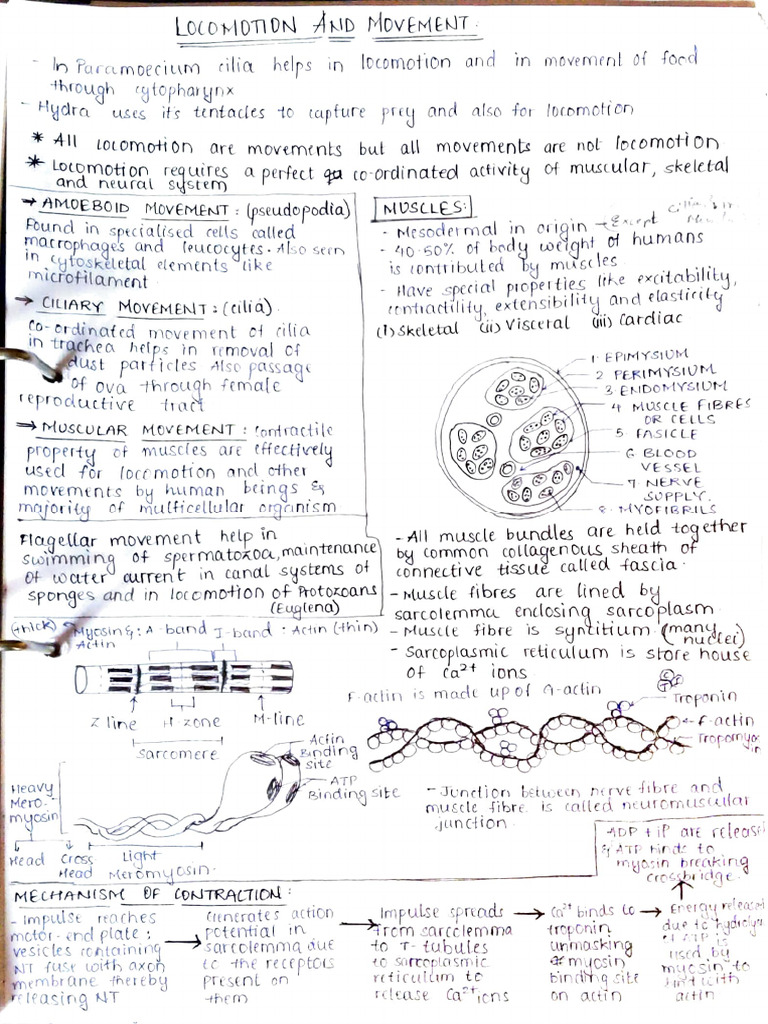 LOCOMOTION AND MOVEMENT:
- In Paramoecium cilia helps in locomotion and in movement of food
through cytopharynx
- Hydra uses its tentacles to capture prey and also for locomotion
* All locomotion are movements but all movements are not locomotion
* Locomotion requires a perfect co-ordinated activity of muscular, skeletal
and neural system
→ AMOEBOID MOVEMENT: (pseudopodia)
Found in specialised cells called
macrophages and leucocytes. Also seen
in cytoskeletal elements like
microfilament
→ CILIARY MOVEMENT: (cilia)
Co-ordinated movement of cilia
in trachea helps in removal of
dust particles Also passage
of ova through female
reproductive tract
→ MUSCULAR MOVEMENT: Contractile
property of muscles are effectively
used for locomotion and other
movements by human beings &
majority of multicellular organism
Flagellar movement help in
swimming of spermatozoa, maintenance
of water current in canal systems of
sponges and in locomotion of Protozoans
(Euglena)
MUSCLES:
- Mesodermal in origin → Except
- 40-50% of body weight of humans
is contributed by muscles
- Have special properties like excitability,
contractility, extensibility and elasticity
(i) Skeletal (ii) Visceral (iii) Cardiac
1. EPIMYSIUM
2 PERIMYSIUM
3 ENDOMYSIUM
4 MUSCLE FIBRES
OR CELLS
5. FASICLE
6. BLOOD
VESSEL
7. NERVE
SUPPLY.
8. MYOFIBRILS
- All muscle bundles are held together
by common collagenous sheath of
connective tissue called fascia.
- Muscle fibres are lined by
sarcolemma enclosing sarcoplasm
- Muscle fibre is syntitium (many
nuclei)
- Sarcoplasmic reticulum is store house
of Ca2+ ions
(thick) Myosin & : A-band I-band : Actin (thin)
Actin
Z line H-zone M-line
Sarcomere
F-actin is made up of G-actin
Troponin
F-actin
Tropomyosin
Actin
Binding
site
ATP
Binding site
Heavy
Mero-
myosin
Head Cross Light
Head Meromyosin
- Junction between nerve fibre and
muscle fibre is called neuromuscular
junction.
MECHANISM OF CONTRACTION:
- Impulse reaches
motor-end plate;
vesicles containing
NT fuse with axon
membrane thereby
releasing NT
→ Generates action
potential in
sarcolemma due
to the receptors
present on
them
→ Impulse spreads
from sarcolemma
to T-tubules
to sarcoplasmic
reticulum to
release Ca2+ ions
→ Ca2+ binds to
troponin
unmasking
of myosin
binding site
on actin
→ Energy released
due to hydrolysis
of ATP is
used by
myosin to
bind with
actin
ADP + iP are released
& ATP binds to
myosin breaking
crossbridge.